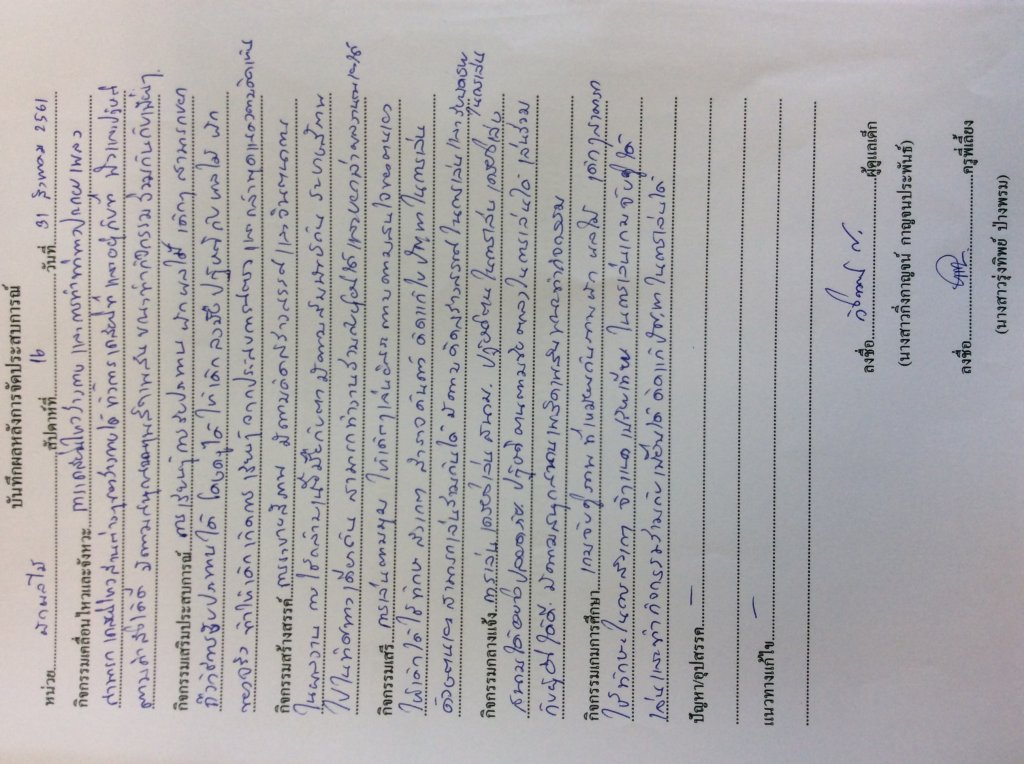 บันทึกผลหลังการจัดประสบการณ์
หน่วย ผักผลไม้ สัปดาห์ที่ 16 วันที่ 31 สิงหาคม 2561
กิจกรรมเคลื่อนไหวและจังหวะ การเคลื่อนไหวร่างกาย และการทำท่าทางประกอบเพลง
สามารถเคลื่อนไหวส่วนต่างๆของร่างกายได้ ทั้งการเคลื่อนที่ และอยู่กับที่ ฟังและปฏิบัติ
ตามคำสั่งได้ดี มีความสนุกสนาน ขณะทำกิจกรรมร่วมกันกับเพื่อนๆ
กิจกรรมเสริมประสบการณ์ การเรียนรู้การรับประทาน ผักผลไม้ เด็กๆ สามารถบอก
ถึงวิธีการรับประทานได้ โดยครูได้ให้เด็กลงมือปฏิบัติกับผลไม้ ผัก
ของจริง ทำให้เด็กเกิดการเรียนรู้จากประสบการณ์ตรง และกล้าพูดแสดงความคิดเห็น
กิจกรรมสร้างสรรค์ การระบายสีภาพ มีความคิดสร้างสรรค์ และจินตนาการ
ในผลงาน การใช้กล้ามเนื้อมือกับตามีความสัมพันธ์กัน ระบายสีภาพ
ไปในทิศทางเดียวกัน สามารถทำงานร่วมกับผู้อื่นได้ และบอกเล่าผลงานตนเองได้
กิจกรรมเสรี การเล่นตามมุม ให้เด็กๆเล่นอิสระ ตามความสนใจของตนเอง
ให้เด็กได้ใช้ทักษะ สังเกต สำรวจ ค้นคว้า คิดแก้ไขปัญหาในการเล่น
ด้วยตนเอง สามารถเล่นร่วมกันได้ มีความคิดสร้างสรรค์ในการเล่น และ
กิจกรรมกลางแจ้ง การเล่นเครื่องเล่นสนาม ปฏิบัติตนในการเล่นเครื่องเล่น
สนามได้อย่างปลอดภัย ปฏิบัติตนตามข้อตกลงในการเล่นได้ เล่นร่วม
กับผู้อื่นได้ดี มีความสนุกสนานเพลิดเพลินขณะทำกิจกรรม
กิจกรรมเกมการศึกษา เกมจับคู่ภาพ ที่เหมือนกันภาพผัก ผลไม้ เด็กๆสามารถ
ใช้ทักษะในการสังเกต จำแนก เปรียบเทียบ ในการเล่นเกมจับคู่ได้
เล่นและทำกิจกรรมร่วมกับเพื่อนได้ คิดแก้ปัญหาในการเล่นได้
ปัญหา/อุปสรรค –
แนวทางแก้ไข –
ลงชื่อ ผู้ดูแลเด็ก
(นางสาวกิ่งกาญจน์ กาญจนประพันธ์)
ลงชื่อ ครูพี่เลี้ยง
(นางสาวรุ่งทิพย์ ป่างพรม)